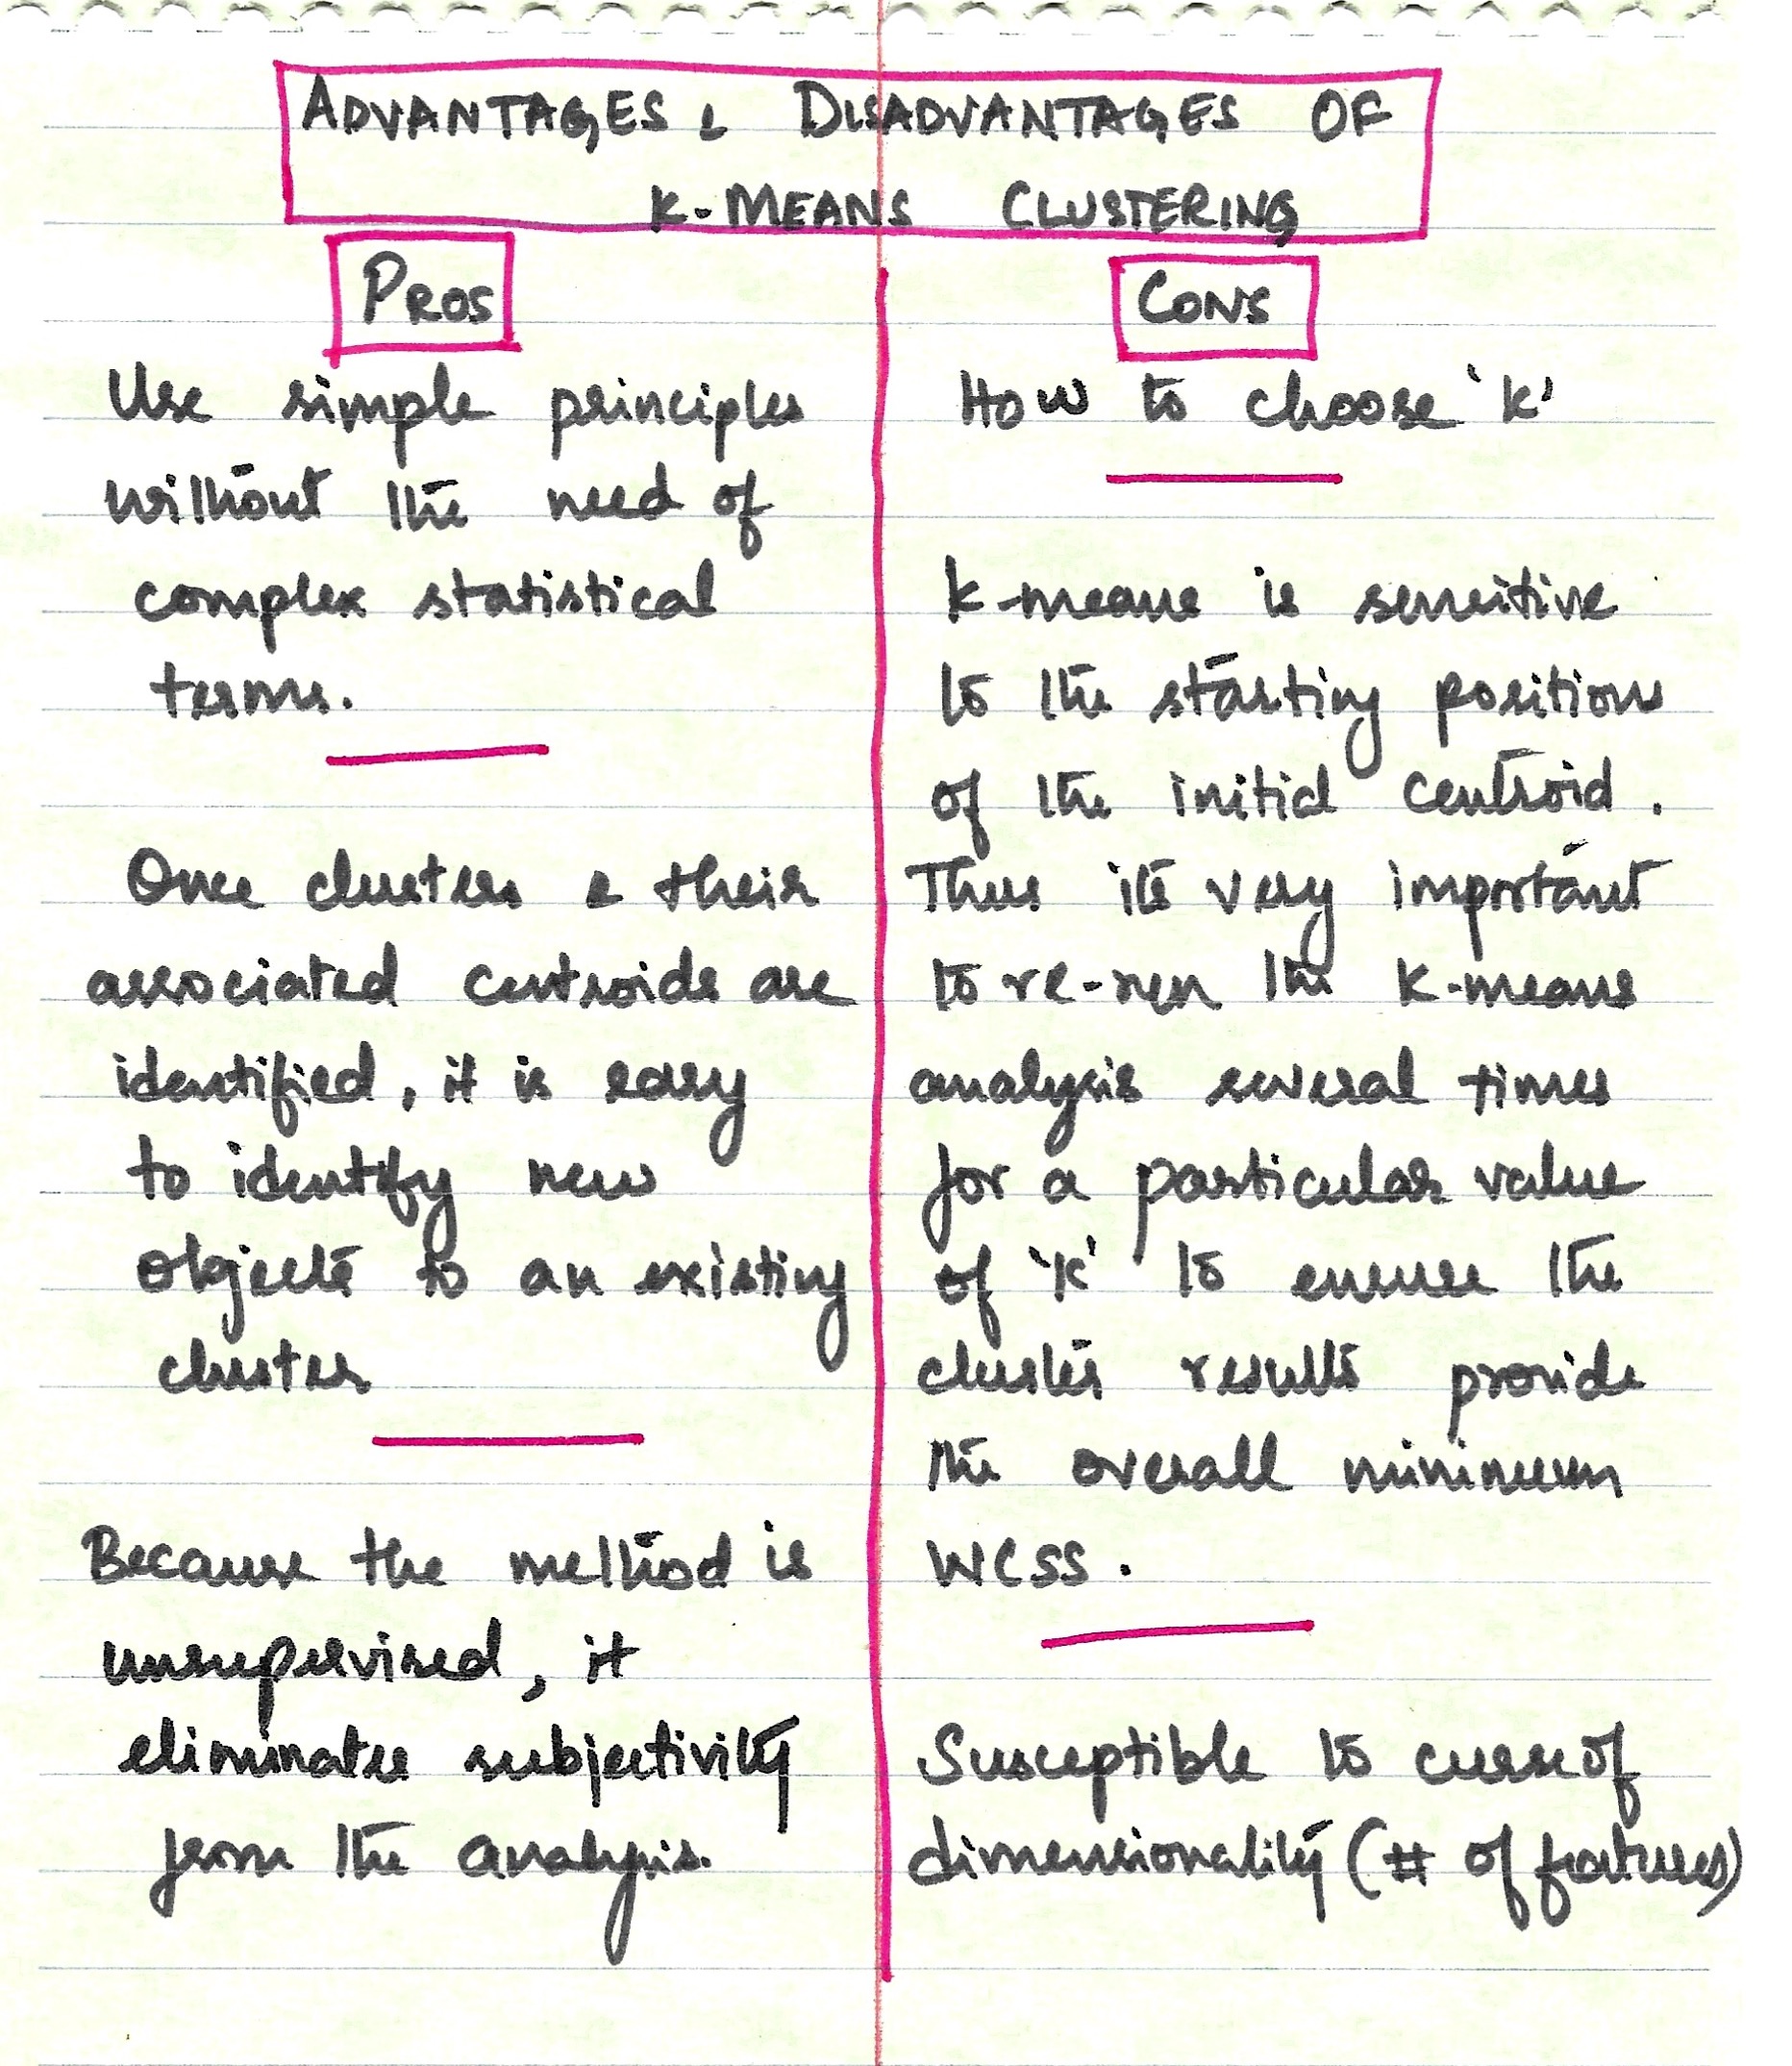 ADVANTAGES & DISADVANTAGES OF
K-MEANS CLUSTERING
PROS
Use simple principles
without the need of
complex statistical
terms.
Once clusters & their
associated centroids are
identified, it is easy
to identify new
objects to an existing
cluster
Because the method is
unsupervised, it
eliminates subjectivity
from the analysis.
CONS
How to choose 'k'
k-means is sensitive
to the starting positions
of the initial centroid.
Thus its very important
to re-run the k-means
analysis several times
for a particular value
of 'k' to ensure the
cluster results provide
the overall minimum
WCSS.
Susceptible to curse of
dimensionality (# of features)